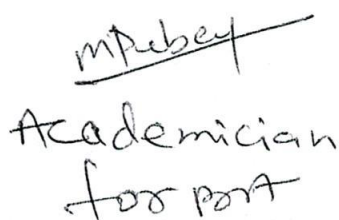 MDubey
Academician
for PRA